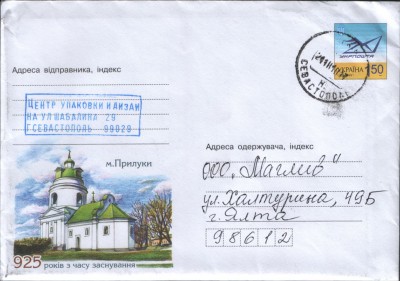 УКРАЇНА 1.50
СЕВАСТОПОЛЬ
Адреса відправника, індекс
ЦЕНТР УПАКОВКИ И ДИЗАЙ
НА УЛ ШАБАЛИНА 29
Г СЕВАСТОПОЛЬ 99029
м.Прилуки
925 років з часу заснування
Адреса одержувача, індекс
ООО "Маглив"
ул. Халтурина, 49Б
г. Ялта
98612